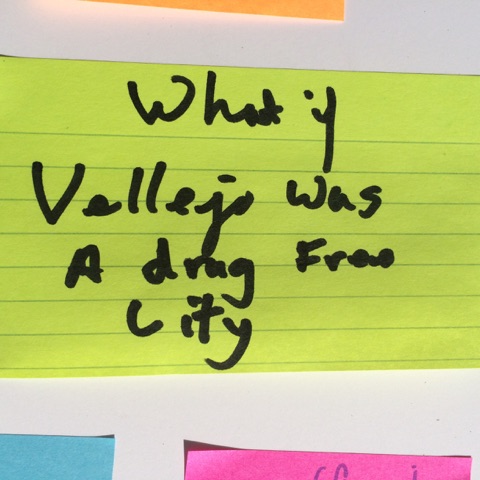 What if
Vallejo was
A drug Free
City